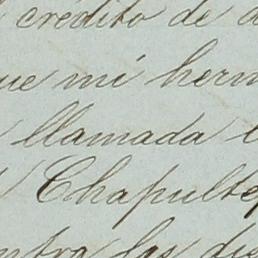 crédito de
que mi herm
llamada
Chapulte
ntra las die